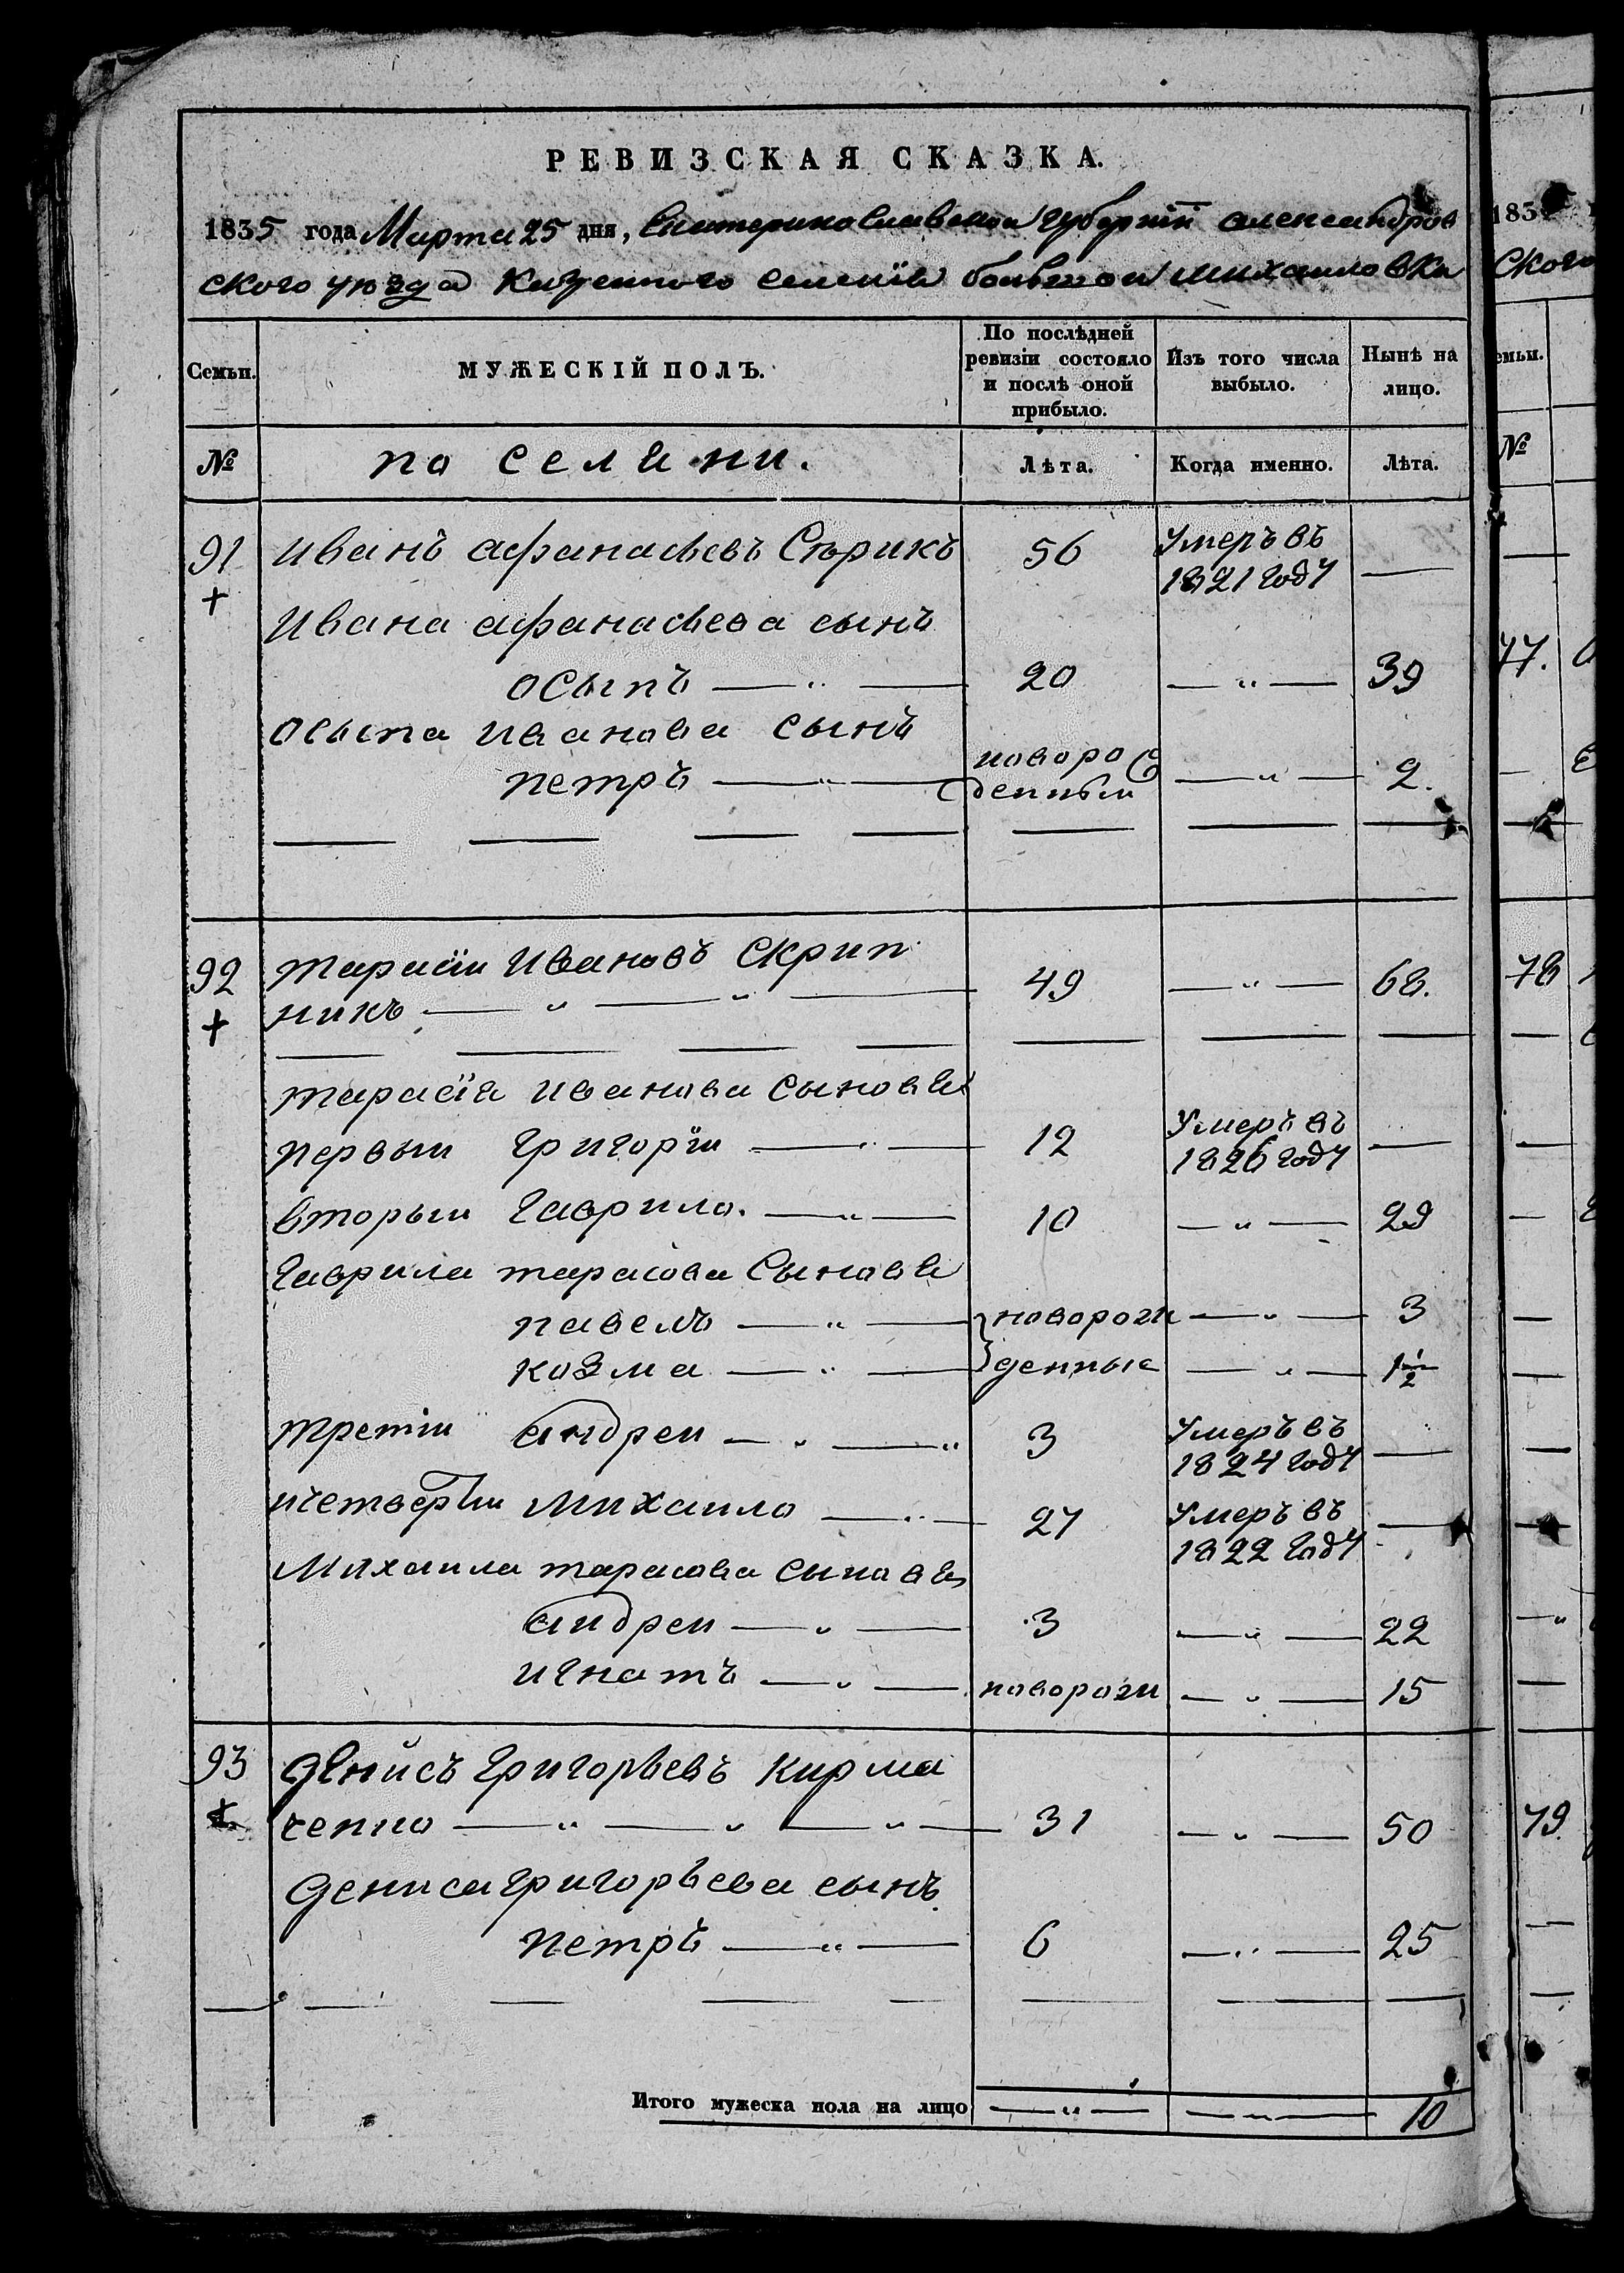 РЕВИЗСКАЯ СКАЗКА.
1835 года Марта 25 дня, Екатеринославской губернїи александров
ского уезда казенного селенїя большой михайловки
Семьи. МУЖЕСКІЙ ПОЛЪ. По послѣдней ревизіи состояло и послѣ оной прибыло. Изъ того числа выбыло. Нынѣ на лицо.
№ поселяни. Лѣта. Когда именно. Лѣта.
91 иванъ афанасьевъ Сьрикъ 56 Умеръ въ 1821 году —
+
Ивана афанасьева сынъ
осыпъ — " — 20 — " — 39
осыпа иванова сынъ
петръ — " — новоро жденный — " — 2.
92 тарасїй ивановъ скрип
+ никъ — " — " — 49 — " — 68.
тарасїя иванова сыновья
первый григорїй — " — 12 Умеръ въ 1826 году —
вторый гаврило. — " — 10 — " — 29
гаврила тарасова сыновья
павелъ — " — новорож — " — 3
козма — " — денные — " — 1½
третїй андреи — " — " 3 Умеръ въ 1824 году —
четвертїй михаило — " — 27 Умеръ въ 1822 году —
михаила тарасова сыновья
андреи — " — 3 — " — 22
игнатъ — " — новорож — " — 15
93 денисъ григорьевъ кирма
+ ченко — " — " — " — 31 — " — 50
дениса григорьева сынъ
петръ — " — 6 — " — 25
Итого мужеска пола на лицо — " — — " — 10
183
ского
емьи.
№
77.
78
79.